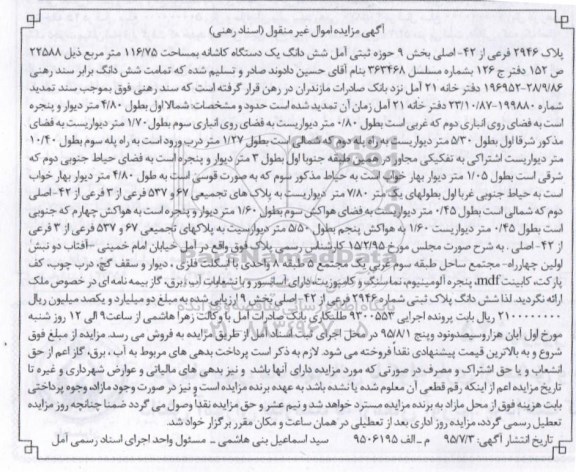 آگهی مزایده اموال غیر منقول (اسناد رهنی)
پلاک ۲۹۴۶ فرعی از ۴۲- اصلی بخش ۹ حوزه ثبتی آمل شش دانگ یک دستگاه کاشانه بمساحت ۱۱۶/۷۵ متر مربع ذیل ۲۲۵۸۸
ص ۱۵۲ دفتر ج ۱۲۶ بشماره مسلسل ۳۶۳۴۶۸ بنام آقای حسین دادوند صادر و تسلیم شده که تمامت شش دانگ برابر سند رهنی
۲۸/۹/۸۶-۱۹۶۹۵۲ دفتر خانه ۲۱ آمل نزد بانک صادرات مازندران در رهن قرار گرفته است که سند رهنی فوق بموجب سند تمدید
شماره ۱۹۹۸۸۰-۲۳/۱۰/۸۷ دفتر خانه ۲۱ آمل زمان آن تمدید شده است حدود و مشخصات شمالا اول بطول ۴/۸۰ متر دیوار و پنجره
است به فضای روی انباری دوم که غربی است بطول ۰/۸۰ متر دیواریست به فضای روی انباری سوم بطول ۱/۷۰ متر دیواریست به فضای
مذکور شرقا اول بطول ۵/۳۰ متر دیواریست به راه پله دوم که شمالی است بطول ۱/۲۷ متر درب ورود است به راه پله سوم بطول ۱۰/۴۰
متر دیواریست اشتراکی به تفکیکی مجاور در همین طبقه جنوبا اول بطول ۳ متر دیوار و پنجره است به فضای حیاط جنوبی دوم که
شرقی است بطول ۱/۰۵ متر دیوار بهار خواب است به حیاط مذکور سوم که به صورت قوسی است به طول ۴/۸۰ متر دیوار بهار خواب
است به حیاط جنوبی غربا اول بطولهای یک متر ۷/۸۰ متر دیواریست به پلاک های تجمیعی ۶۷ و ۵۳۷ فرعی از ۳ فرعی از ۴۲-اصلی
دوم که شمالی است بطول ۰/۴۵ متر دیواریست به فضای هواکش سوم بطول ۱/۶۰ متر دیوار و پنجره است به هواکش چهارم که جنوبی
است بطول ۰/۴۵ متر دیواریست ۱/۶۰ به هواکش پنجم بطول ۵/۵۰ متر دیواریست به پلاکهای تجمیعی ۶۷ و ۵۳۷ فرعی از ۳ فرعی
از ۴۲- اصلی . به شرح صورت مجلس مورخ ۱۵/۲/۹۵ کارشناس رسمی پلاک فوق واقع در آمل خیابان امام خمینی -آفتاب دو نبش
اولین چهارراه- مجتمع ساحل طبقه سوم غربی یک مجتمع ۵ طبقه ۸ واحدی با اسکلت فلزی ، دیوار و سقف گچ، درب چوب، کف
پارکت، کابینت mdf، پنجره آلومینیوم، نماسنگ و کامپوزیت، دارای آسانسور و با انشعابات آب، برق، گاز بیمه نامه ای در خصوص ملک
ارائه نگردید. لذا شش دانگ پلاک ثبتی شماره ۲۹۴۶ فرعی از ۴۲- اصلی بخش ۹ ارزیابی شده به مبلغ دو میلیارد و یکصد میلیون ریال
۲۱۰۰۰۰۰۰۰۰ ریال بابت پرونده اجرایی ۹۳۰۰۵۵۳ طلبکاری بانک صادرات آمل با وکالت زهرا هاشمی از ساعت ۹ الی ۱۲ روز شنبه
مورخ اول آبان هزار و سیصد و نود و پنج ۹۵/۸/۱ در محل اجرای ثبت اسناد آمل از طریق مزایده به فروش می رسد. مزایده از مبلغ فوق
شروع و به بالاترین قیمت پیشنهادی نقداً فروخته می شود. لازم به ذکر است پرداخت بدهی های مربوط به آب ، برق، گاز اعم از حق
انشعاب و یا حق اشتراک و مصرف در صورتی که مورد مزایده دارای آنها باشد و نیز بدهی های مالیاتی و عوارض شهرداری و غیره تا
تاریخ مزایده اعم از اینکه رقم قطعی آن معلوم شده یا نشده باشد به عهده برنده مزایده است و نیز در صورت وجود مازاد، وجوه پرداختی
بابت هزینه فوق از محل مازاد به برنده مزایده مسترد خواهد شد و نیم عشر و حق مزایده نقداً وصول می گردد ضمناً چنانچه روز مزایده
تعطیل رسمی گردد، مزایده روز اداری بعد از تعطیلی در همان ساعت و مکان مقرر برگزار خواد شد.
تاریخ انتشار آگهی: ۹۵/۷/۳ م-الف ۹۵۰۶۱۹۵ سید اسماعیل بنی هاشمی - مسئول واحد اجرای اسناد رسمی آمل